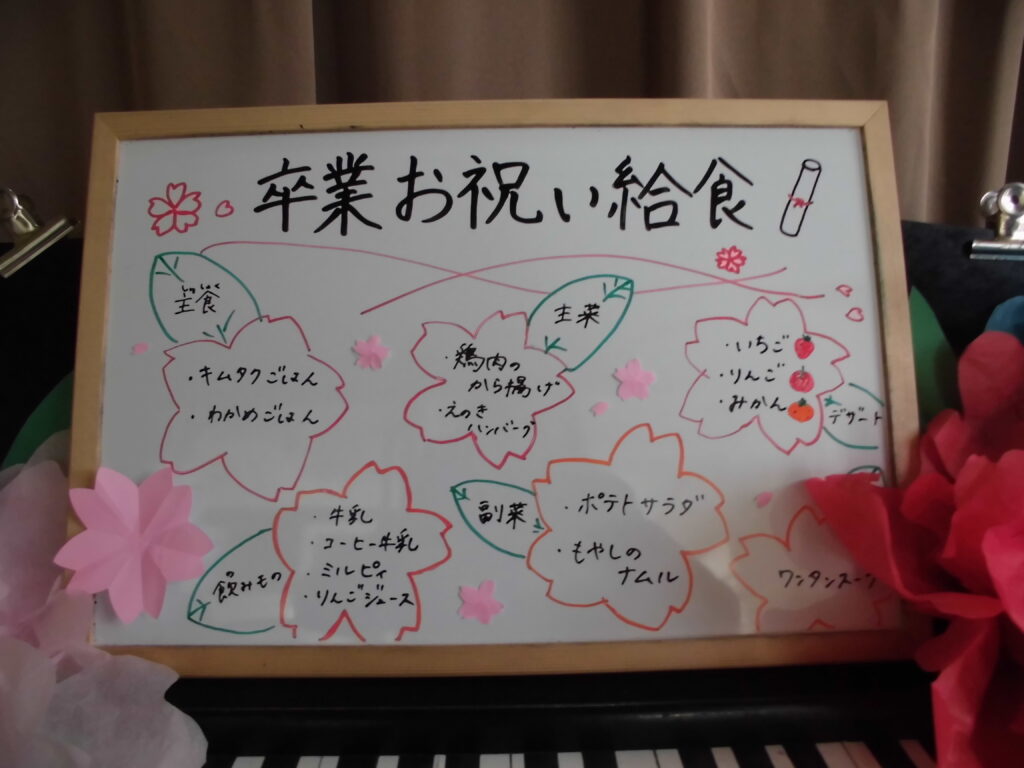 卒業お祝い給食
しゅしょく
主食
・キムタクごはん
・わかめごはん
主菜
・鶏肉の
から揚げ
・えのき
ハンバーグ
・いちご
・りんご
・みかん
デザート
飲みもの
・牛乳
・コーヒー牛乳
・ミルピィ
・りんごジュース
副菜
・ポテトサラダ
・もやしの
ナムル
ワンタンスープ